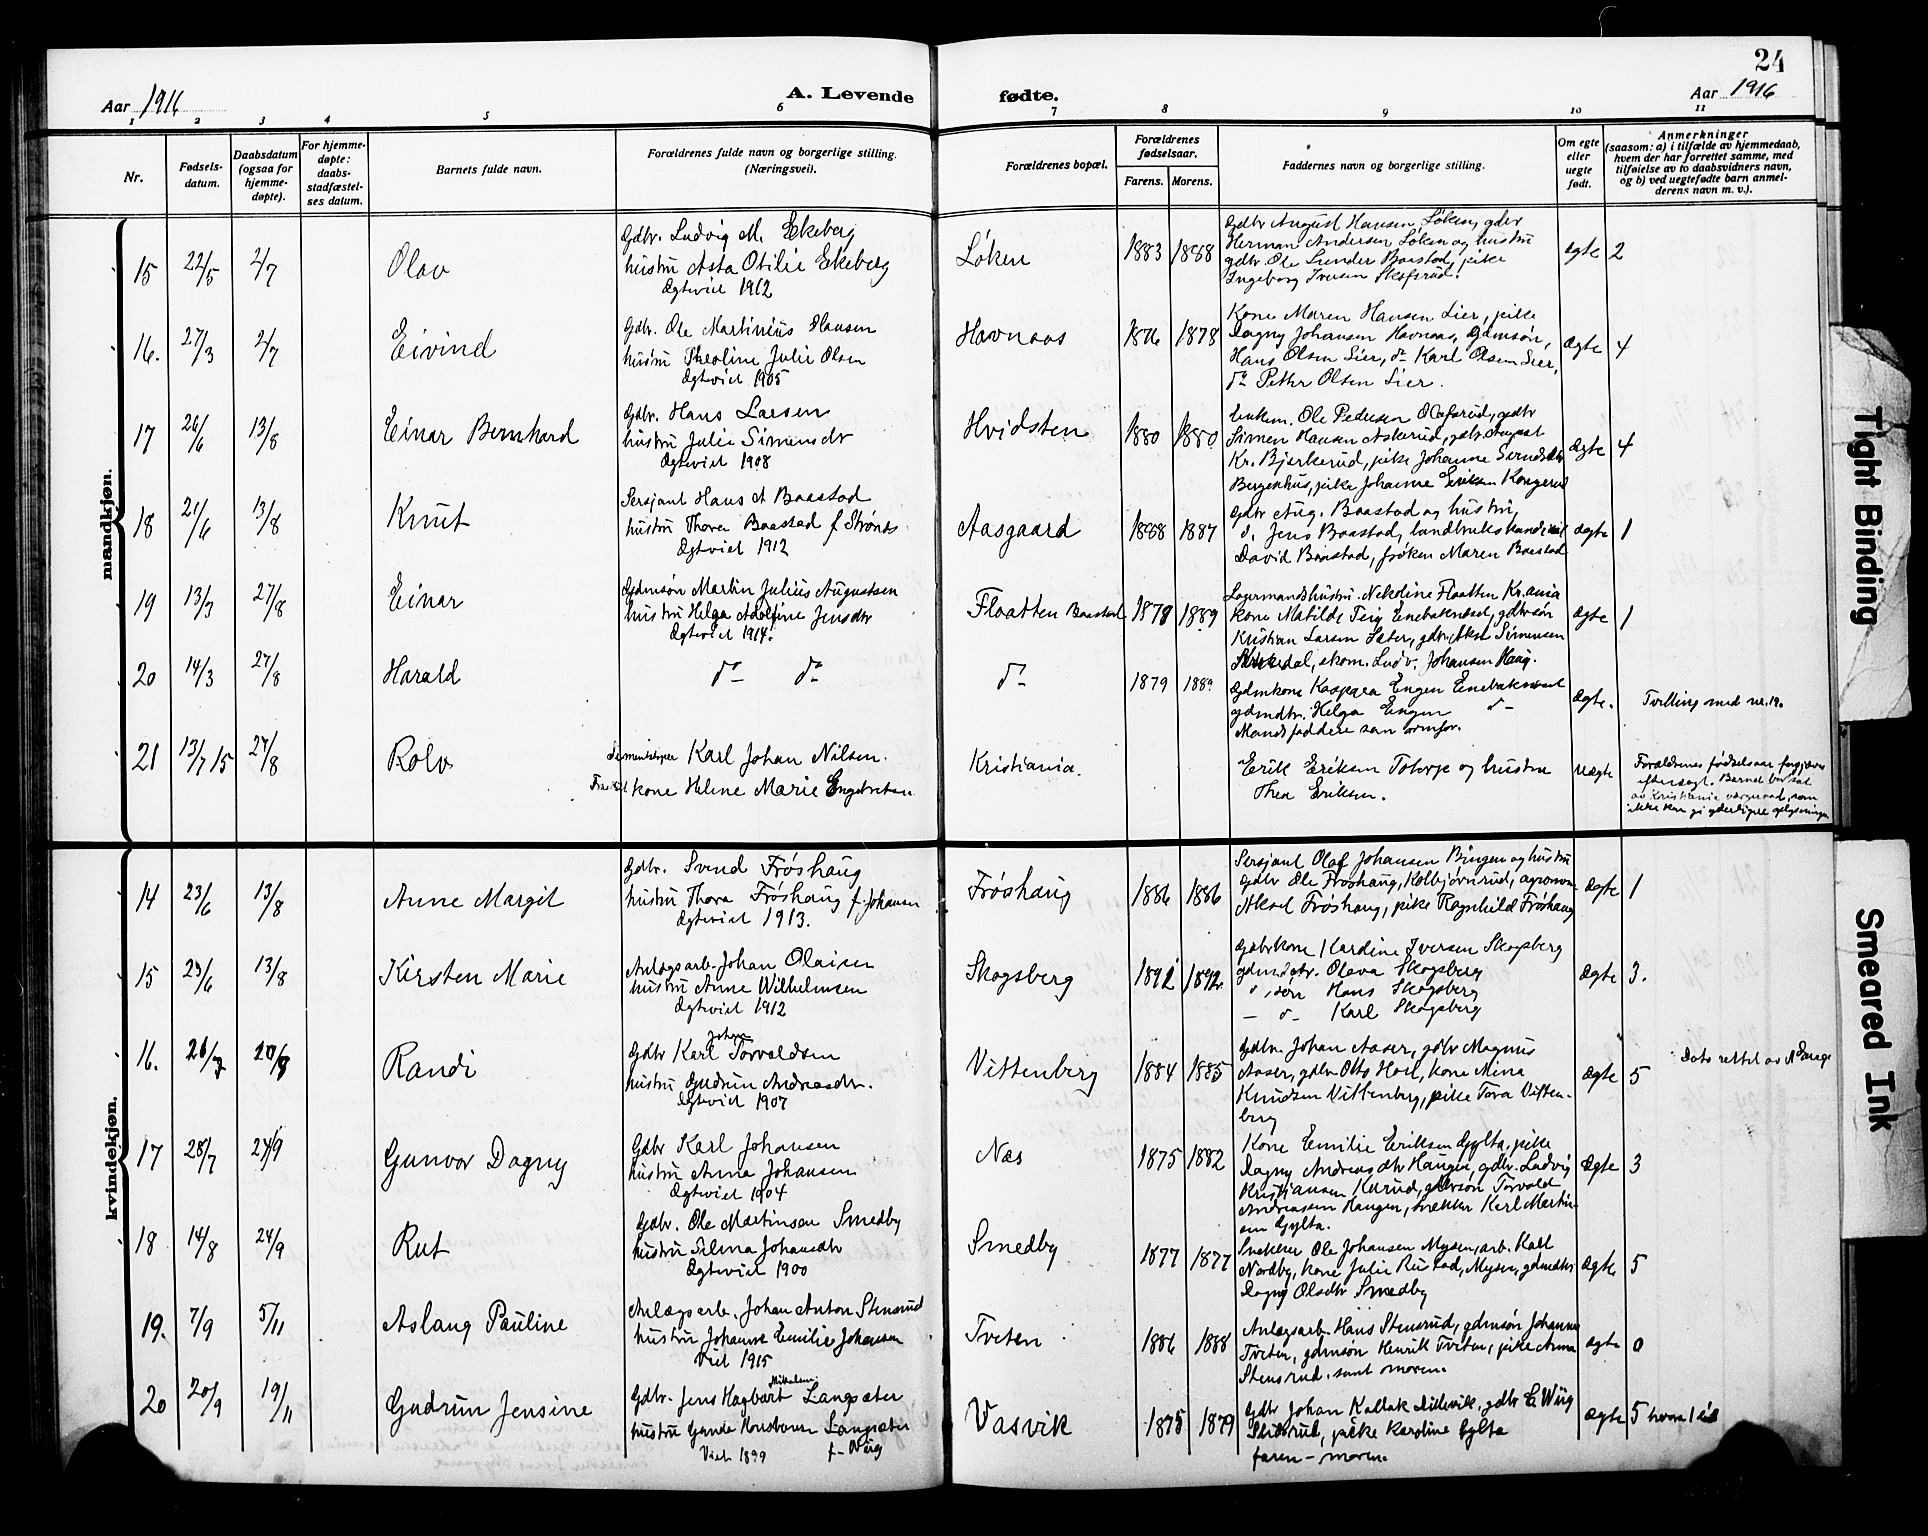 24
Aar 1916
A. Levende
fødte.
Aar 1916
1 2 3 4 5 6 7 8 9 10 11
Nr.
Fødsels-
datum.
Daabsdatum
(ogsaa for
hjemme-
døpte).
For hjemme-
døpte:
daabs-
stadfæstel-
ses datum.
Barnets fulde navn.
Forældrenes fulde navn og borgerlige stilling.
(Næringsvei).
Forældrenes bopæl.
Forældrenes
fødselsaar.
Farens. Morens.
Faddernes navn og borgerlige stilling.
Om egte
eller
uegte
født.
Anmerkninger
(saasom: a) i tilfælde av hjemmedaab,
hvem der har forrettet samme, med
tilføielse av to daabsvidners navn,
og b) ved uegtefødte barn anmel-
derens navn m. v.).
mandkjøn.
15 22/5 2/7 Olav
Gdbr. Ludvig M. Ekeberg
hustru Asta Otilie Ekeberg
Ægteviet 1912
Løken 1883 1888
Gdbr August Hansen Løken, gdbr
Herman Andersen Løken og hustru
gdbr. Ole Sunder Baastad, pike
Ingeborg Iversen Skofsrud.
ægte 2
16. 27/3 2/7 Eivind
Gdbr. Ole Martinius Hansen
hustru Theoline Julie Olsen
Ægteviet 1905
Havnaas 1876 1878
Kone Maren Hansen Lier, pike
Dagny Johansen Havnaas, Gdmsøn,
Hans Olsen Lier, do Karl Olsen Lier,
do Petter Olsen Lier.
ægte 4
17 26/6 13/8 Einar Bernhard
Gdbr. Hans Larsen
hustru Julie Simensdr
Ægteviet 1908
Hvidsten 1880 1880
Enkem. Ole Pedersen Olafsrud, gdbr
Simen Hansen Askerud, gdbr. August
Kr. Bjerkerud, pike Johanne
Bergenhus, pike Johanne Eriksen Kongerud
Ægte 4
18 21/6 13/8 Knut
Sersjant Hans A Baastad
hustru Thora Baastad f Strønes
Ægteviet 1912
Aasgaard 1888 1887
Gdbr Aug. Baastad og hustru,
d. Jens Baastad, landbrukskandidat
David Baastad, frøken Maren Baastad
ægte 1
19 13/3 27/8 Einar
Gdmsøn Martin Julius Augustsen
hustru Helga Adolfine Jensdtr
Ægteviet 1914.
Flaatten Baastad 1879 1889
Lagermandshustru Nekoline Flaatten Kr.ania
kone Matilde Teig Enebaknesset, gdbrsøn
Kristian Larsen Sæter, gdbr. Aksel Simensen
Kirkedal, ekom. Ludv. Johansen Haug.
Ægte 1
20 14/3 27/8 Harald
do do
do 1879 1889
Gdmkone Kaspara Engen Enebaknesset
gdmdtr. Helga Engen do
Mandsfaddere som ovenfor.
Ægte.
Tvilling med nr. 19.
21 13/7 15 27/8 Rolv
Karl Johan Nilsen.
kone Helene Marie Engebretsen
Kristiania.
Erik Eriksen Toterpe og hustru
Thea Eriksen.
uægte
Forældrenes fødselsaar forgjæves
eftersøgt. Barnet bortsat
av Kristiania værgeraad, som
ikke kan gi yderligere oplysninger.
kvindekjøn.
14 23/6 13/8 Anne Margit
Gdbr. Svend Frøshaug
hustru Thora Frøshaug f. Johansen
Ægteviet 1913.
Frøshaug 1886 1886
Sersjant Olaf Johansen Bingen og hustru
Gdbr Ole Frøshaug, Kolbjørnsrud, agronom
Aksel Frøshaug, pike Ragnhild Frøshaug
Ægte 1
15 29/6 13/8 Kirsten Marie
Anlægsarb. Johan Olaisen
hustru Anne Wilhelmsen
Ægteviet 1912
Skogsberg 1892 1892
Gdbrkone Kardine Iversen Skogsberg
gdmdtr. Oleva Skogsberg
d , søn Hans Skogsberg
— d — Karl Skogsberg
Ægte 3.
16. 26/7 20/8 Randi
Johan
Gdbr Karl Torvaldsen
hustru Gudrun Andreasdtr.
Ægteviet 1907
Vittenberg 1884 1885
Gdbr. Johan Aaser, gdbr Magnus
Aaser, gdbr Otto Hoel, kone Mina
Knudsen Vittenberg, pike Tora Vitten-
berg
Ægte 5
Dato rettet av
17 28/7 24/9 Gunvor Dagny
Gdbr Karl Johansen
hustru Anna Johansen
Ægteviet 1904
Næs 1875 1882
Kone Emilie Eriksen Gylta, pike
Dagny Andreasdtr Haugen, gdbr. Ludvig
Kristiansen Kurud, gdbrsøn Torvald
Andreassen Haugen, snekker Karl Martin-
sen Gylta.
Ægte 3
18 14/8 24/9 Rut
Gdbr. Ole Martinsen Smedby
hustru Selma Johansdtr
Ægteviet 1900
Smedby 1877 1877
Snekker Ole Johansen Mysen, arb. Karl
Nordby, kone Julie Rustad, Mysen, gdmdtr
Dagny Olsdtr Smedby
Ægte 5
19. 7/9 5/11 Aslaug Pauline
Anlægsarb. Johan Anton Stensrud
hustru Johanne Emilie Johansen
Viet 1915
Tveten 1886 1888
Anlægsarb. Hans Stensrud, gdmsøn Johannes
Tveten, gdmsøn Henrik Tveten, pike Anna
Stensrud, samt moren.
ægte 0
20 20/9 19/11 Gudrun Jensine
Mikalsen
Gdbr. Jens Hagbart Langsæter
hustru Gunda Langsæter
Viet 1899 f. Wiig
Vasvik 1875 1879
Gdbr Johan Kallak Lillevik, gdbr E Wiig
Stensrud, pike Karoline Gylta
faren — moren.
ægte 5 hvorav 1 død
Tight Binding
Smeared Ink